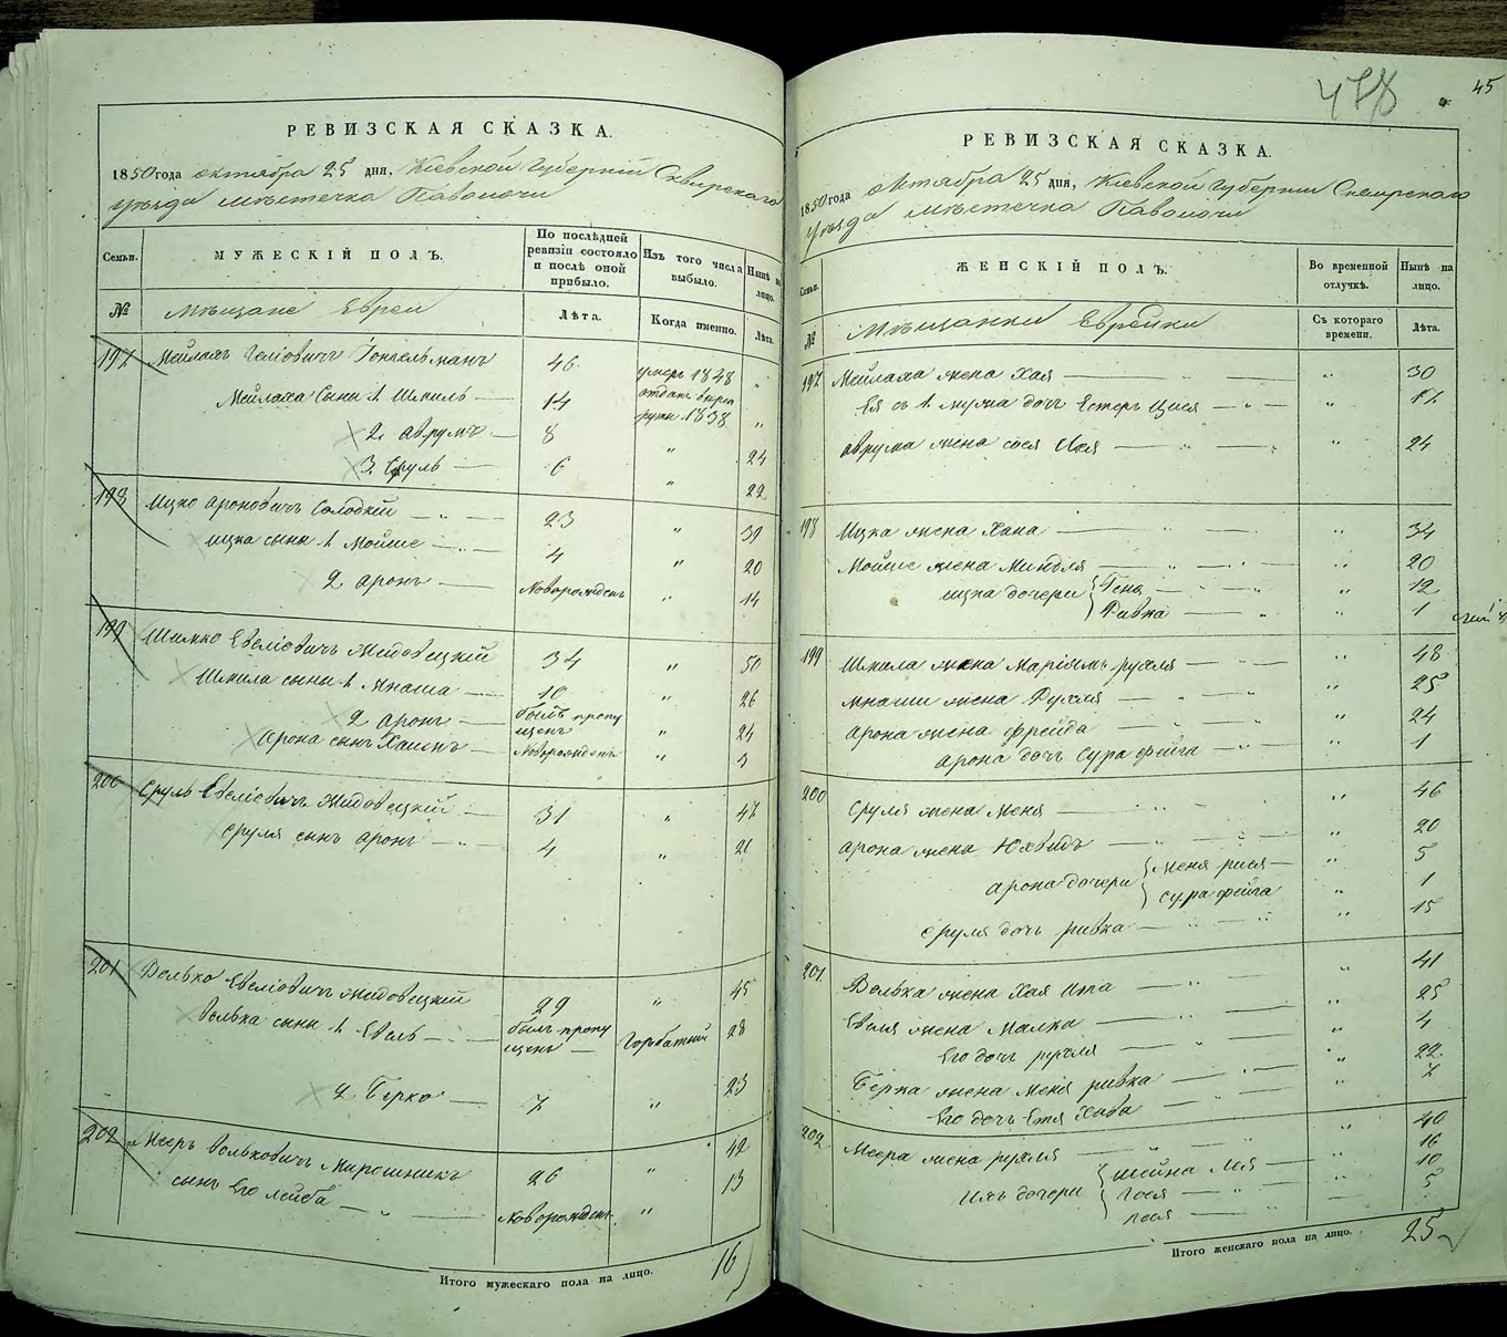 478
45
РЕВИЗСКАЯ СКАЗКА.
1850 года октября 25 дня, Кіевской Губерніи Сквирскаго
уѣзда мѣстечка Паволочи
Семьи.
МУЖЕСКІЙ ПОЛЪ.
По послѣдней ревизіи состояло и послѣ оной прибыло.
Изъ того числа выбыло.
Нынѣ на лицо.
№
Мѣщане Евреи
Лѣта.
Когда именно.
Лѣта.
197 Мейлахъ 46 умеръ 1848 „
Мейлаха сыны 1 Шмиль 14 отданъ в рекруты 1838 „
2 аврумъ 8 „ 24
3 Сруль 6 „ 22
198 Ицко Ароновичъ Солодкій 23 „ 39
ицка сыны 1 Мошие 4 „ 20
2 аронъ Новорожденъ „ 14
199 Шмило Евеліовичъ Жидовецкій 34 „ 50
Шмила сыны 1 Мнаша 10 „ 26
2 аронъ былъ пропущенъ „ 24
Арона сынъ Новорожденъ „ 3
200 Сруль Евеліовичъ Жидовецкій 31 „ 47
Сруля сынъ аронъ 4 „ 20
201 Волько Евеліовичъ Жидовецкій 29 „ 45
Волька сыны 1 Евель былъ пропущенъ Горбатый 28
2 Берко 7 „ 23
202 Мееръ Вольковичъ Мирошникъ 26 „ 42
сынъ Его лейба Новорожденъ „ 13
Итого мужескаго пола на лицо. 16
РЕВИЗСКАЯ СКАЗКА.
1850 года октября 25 дня, Кіевской Губерніи Сквирскаго
уѣзда мѣстечка Паволочи
Семьи.
ЖЕНСКІЙ ПОЛЪ.
Во временной отлучкѣ.
Нынѣ на лицо.
№
Мѣщанки Еврейки
Съ котораго времени.
Лѣта.
197 Мейлаха жена Хая „ 30
Ея съ 1 мужа дочь Естеръ Цися „ 12
аврума жена „ 24
198 Ицка жена Хана „ 34
Мошие жена Миндля „ 20
ицка дочери Геня „ 12
Ривка „ 1
199 Шмила жена Маріямъ рухля „ 48
мнаши жена Рухля „ 25
арона жена фрейда „ 24
арона дочь Сура фейга „ 1
200 Сруля жена Меня „ 46
арона жена Юхведъ „ 20
арона дочери меня рися „ 5
сура фейга „ 1
Сруля дочь ривка „ 15
201 Волька жена Хая Ита „ 41
Евеля жена Малка „ 25
Его дочь рухля „ 4
Берка жена Меня ривка „ 22
Его дочь Етя Хава „ 7
202 Меера жена рухля „ 40
ихъ дочери шейна лея „ 16
Гося „ 10
песя 5
Итого женскаго пола на лицо. 25